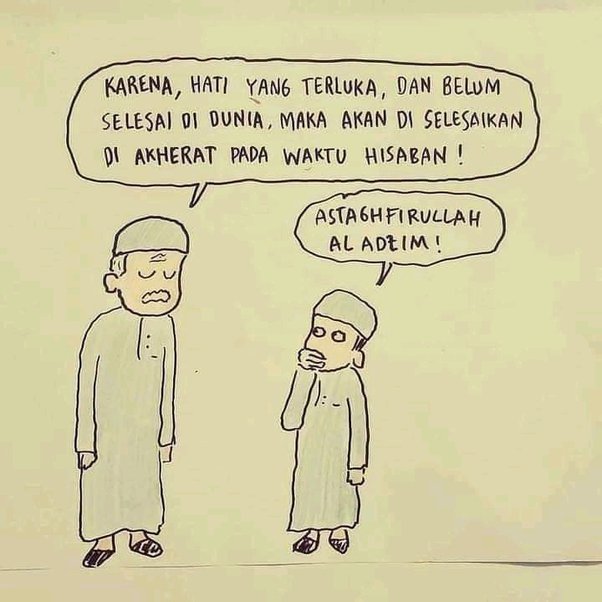 KARENA, HATI YANG TERLUKA, DAN BELUM
SELESAI DI DUNIA, MAKA AKAN DI SELESAIKAN
DI AKHERAT PADA WAKTU HISABAN!
ASTAGHFIRULLAH
AL ADZIM!